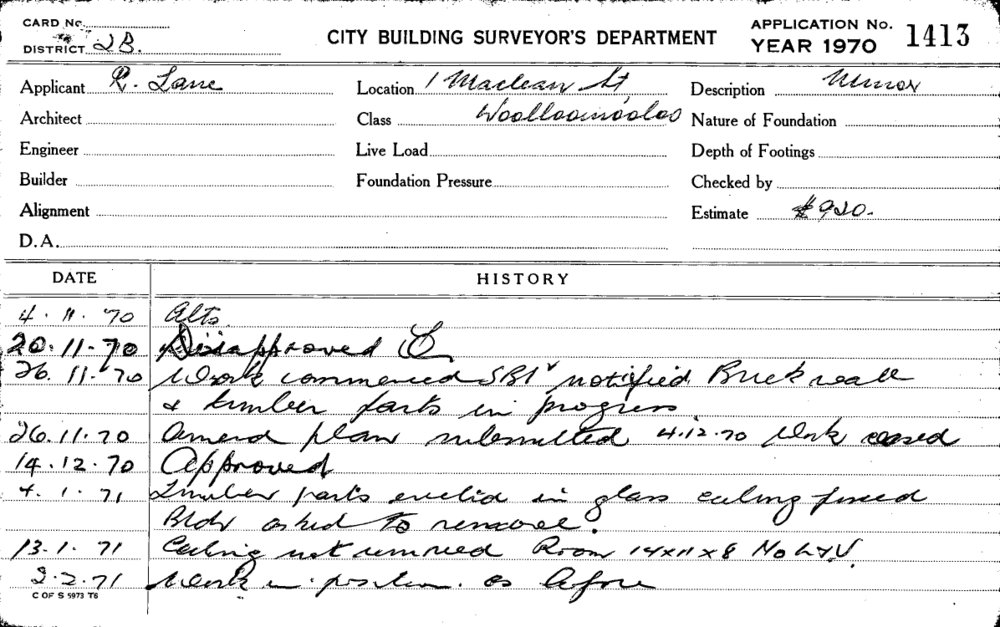 CARD No.
DISTRICT 2B.
CITY BUILDING SURVEYOR'S DEPARTMENT
APPLICATION No. 1413
YEAR 1970
Applicant R. Lane
Location 1 Maclean St
Description Minor
Architect
Class Woolloomooloo
Nature of Foundation
Engineer
Live Load
Depth of Footings
Builder
Foundation Pressure
Checked by
Alignment
Estimate $920.
D.A.
DATE HISTORY
4. 11. 70 Alts.
20. 11. 70 Disapproved
26. 11. 70 Work commenced SBI notified Brick wall
& timber parts in progress.
26. 11. 70 Amend plan submitted 4.12.70 Work ceased
14. 12. 70 Approved
4. 1. 71 Timber parts in glass ceiling fixed
Bldr asked to remove.
13. 1. 71 Ceiling not removed Room 14x11x8 No L&V.
2. 2. 71 Work in position as before
C OF S 5973 T6